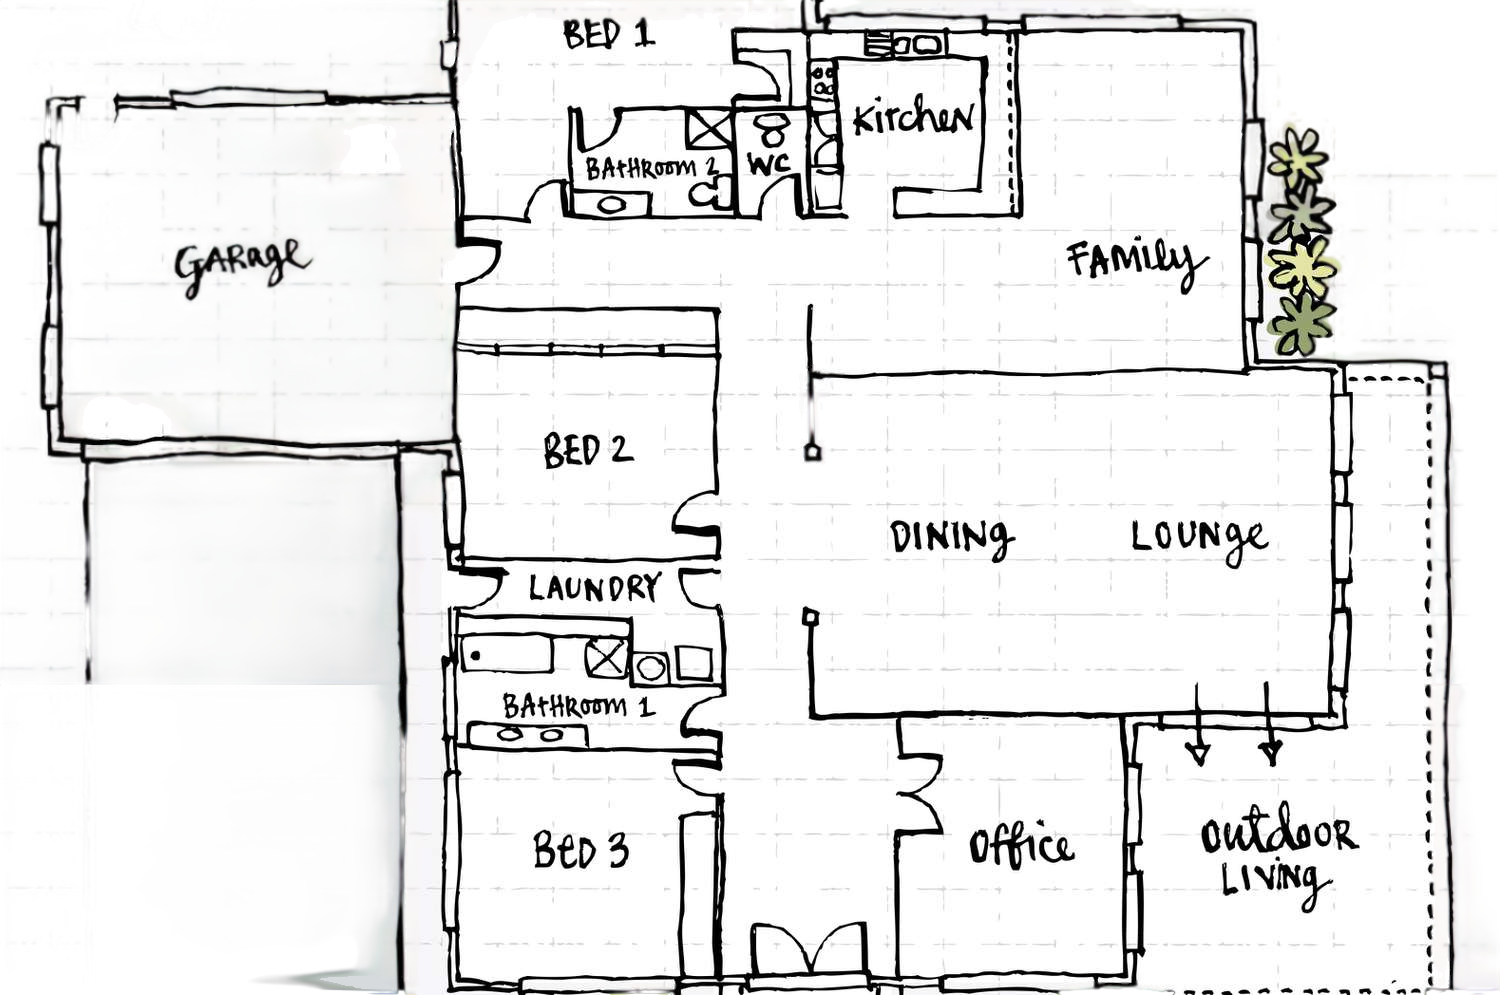 BED 1
Kitchen
BAtHRoom 2
WC
GARage
FAMily
BED 2
DINING
LOUNge
LAUNDRY
BAtHRoom 1
BeD 3
Office
OutdooR
LIViNg